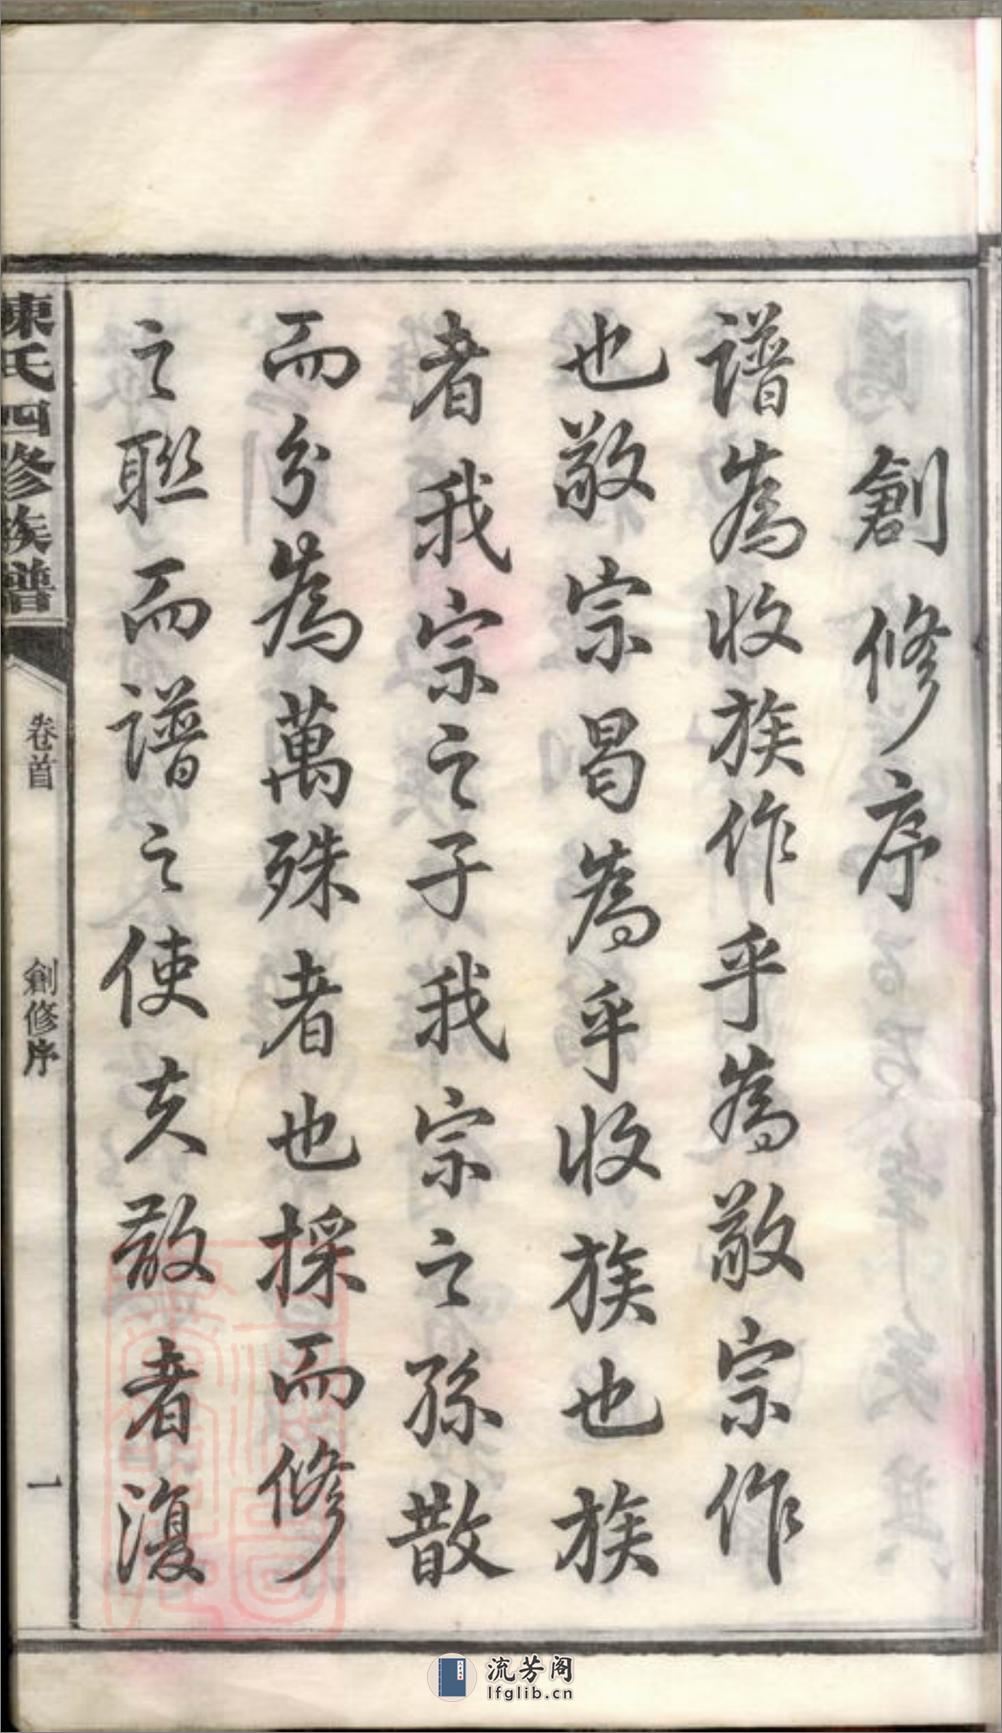 創修序
譜為收族作乎為敬宗作
也敬宗曷為乎收族也族
者我宗之子我宗之孫散
而分為萬殊者也採而修
之聯而譜之使夫散者復
陳氏四修族譜
卷首
創修序
一
流芳阁
lfglib.cn